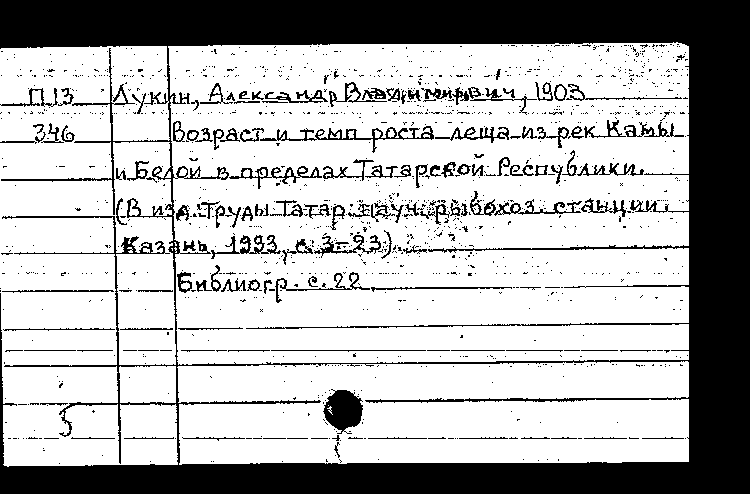 П13 Лукин, Александр Владимирович, 1903
346 Возраст и темп роста леща из рек Камы
и Белой в пределах Татарской Республики.
(В изд. Труды Татар. науч. рыбохоз. станции.
Казань, 1933, с. 3-23).
Библиогр. с. 22.
5